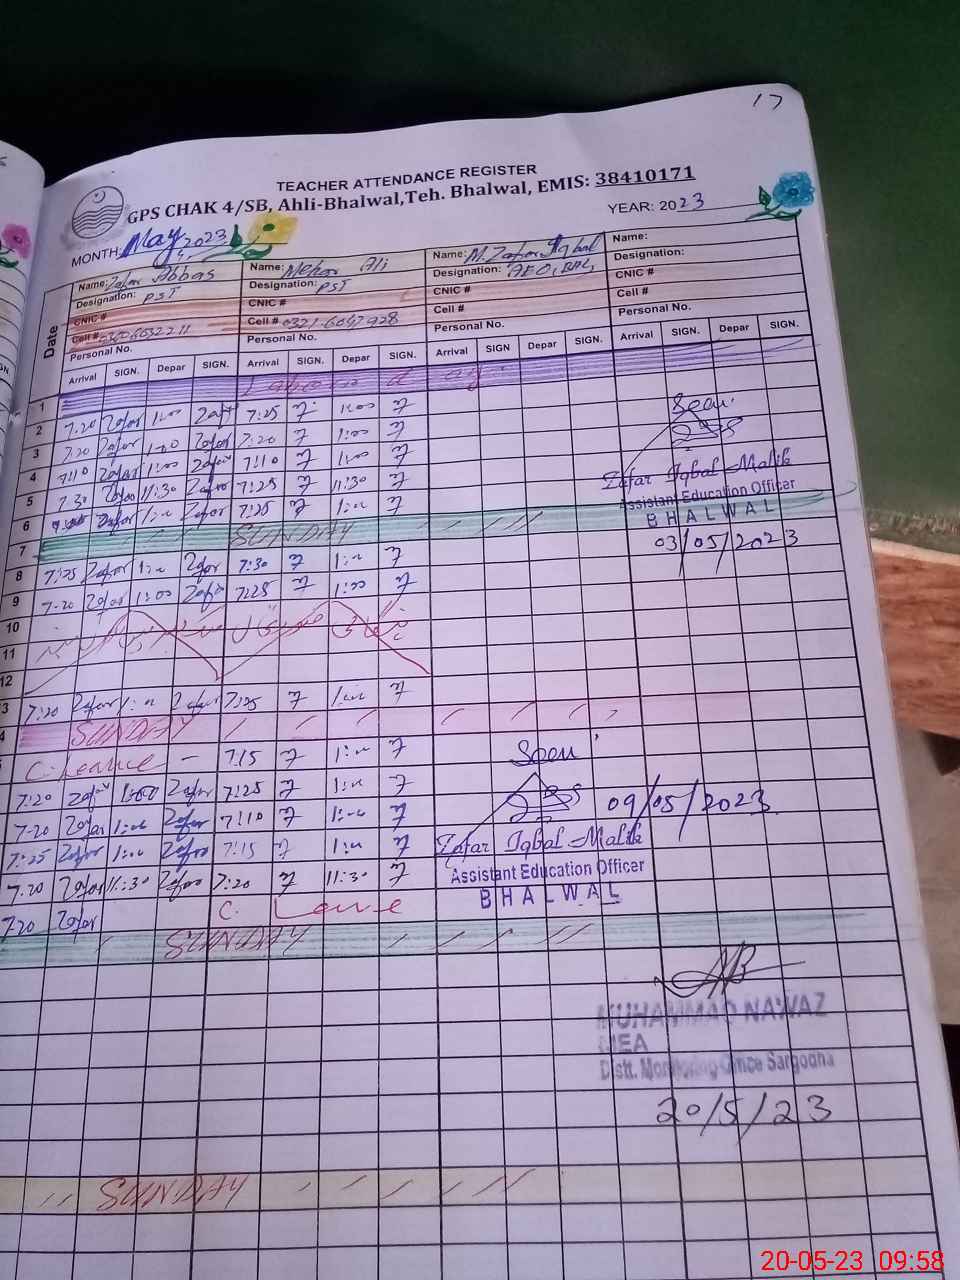 17
TEACHER ATTENDANCE REGISTER
GPS CHAK 4/SB, Ahli-Bhalwal,Teh. Bhalwal, EMIS: 38410171
MONTH: May, 2023 YEAR: 2023
Date
Name: Zafar Abbas Name: Mehar Ali Name: M. Zafar Iqbal Name:
Designation: PST Designation: PST Designation: AEO, BHL, Designation:
CNIC # CNIC # CNIC # CNIC #
Cell # Cell # 0321-6047928 Cell # Cell #
Personal No. Personal No. Personal No. Personal No.
Arrival SIGN. Depar SIGN. Arrival SIGN. Depar SIGN. Arrival SIGN Depar SIGN. Arrival SIGN. Depar SIGN.
1 Labour day
2 7:20 Zafar 1:00 Zafar 7:25 1:00
3 7:20 Zafar 1:00 Zafar 7:20 1:00
4 7:10 Zafar 1:00 Zafar 7:10 1:00
5 7:30 Zafar 11:30 Zafar 7:25 11:30
6 Zafar 1:00 Zafar 7:25 1:00
7 SUNDAY
8 7:25 Zafar 1:00 Zafar 7:30 1:00
9 7:20 Zafar 1:00 Zafar 7:25 1:00
10
11
12
3 7:20 Zafar 1:00 Zafar 7:25 1:00
4 SUNDAY
C. Leave – 7:15 1:00
7:20 Zafar 1:00 Zafar 7:25 1:00
7:20 Zafar 1:00 Zafar 7:10 1:00
7:25 Zafar 1:00 Zafar 7:15 1:00
7:20 Zafar 11:30 Zafar 7:20 11:30
7:20 Zafar C. Leave
SUNDAY
SUNDAY
Seen
Zafar Iqbal Malik
Assistant Education Officer
BHALWAL
03/05/2023
Seen
09/05/2023
Zafar Iqbal Malik
Assistant Education Officer
BHALWAL
MUHAMMAD NAWAZ
MEA
Distt. Monitoring Office Sargodha
20/5/23
20-05-23 09:58